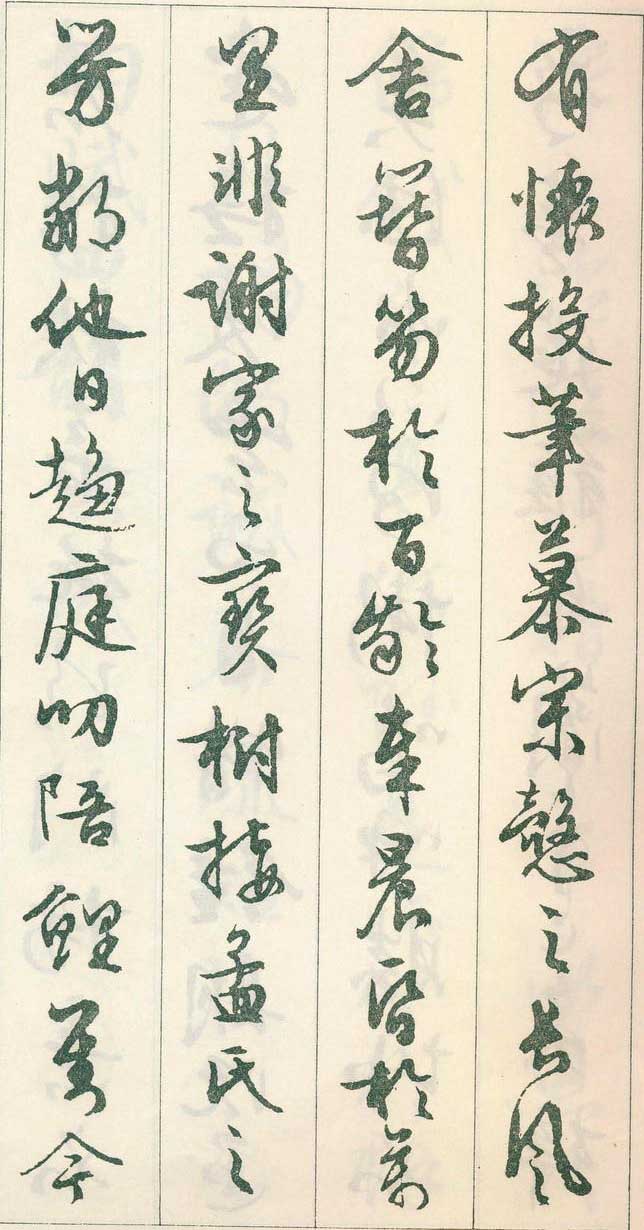 有懷投筆慕宗愨之長風
舍簪笏於百齡奉晨昏於萬
里非謝家之寶樹接孟氏之
芳鄰他日趨庭叨陪鯉對今